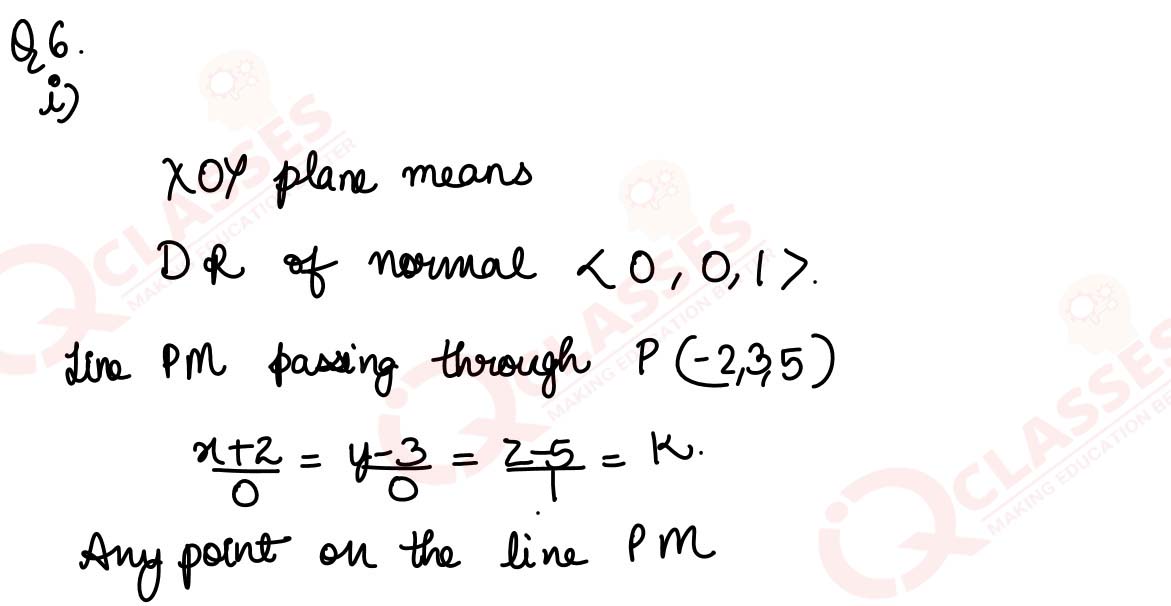 Q6.
i)
XOY plane means
DR of normal <0, 0, 1>.
Line PM passing through P(-2,3,5)
x+2/0 = y-3/0 = z-5/1 = K.
Any point on the line PM
CLASSES
MAKING EDUCATION BETTER
CLASSES
MAKING EDUCATION BE
CLASSES
MAKING EDUCATION BE